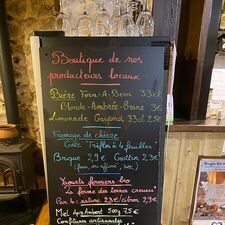 Boutique de nos
producteurs locaux
Bière Forn-A-Bem 33cl
Blonde-Ambrée-Brune 3€
Limonade Gaspard 33cl 2.5€
Fromage de chèvre
Gaec Trèfles à 4 feuilles
Brique 2,9€ Crottin 2,3€
(frais, ou affiné, sec)
Yaourts fermiers bio
La ferme des terres creuses
Par 4: nature 2,8€/arôm 2,9€
Miel Apis Aubert 500g 7.5€
Confitures artisanales